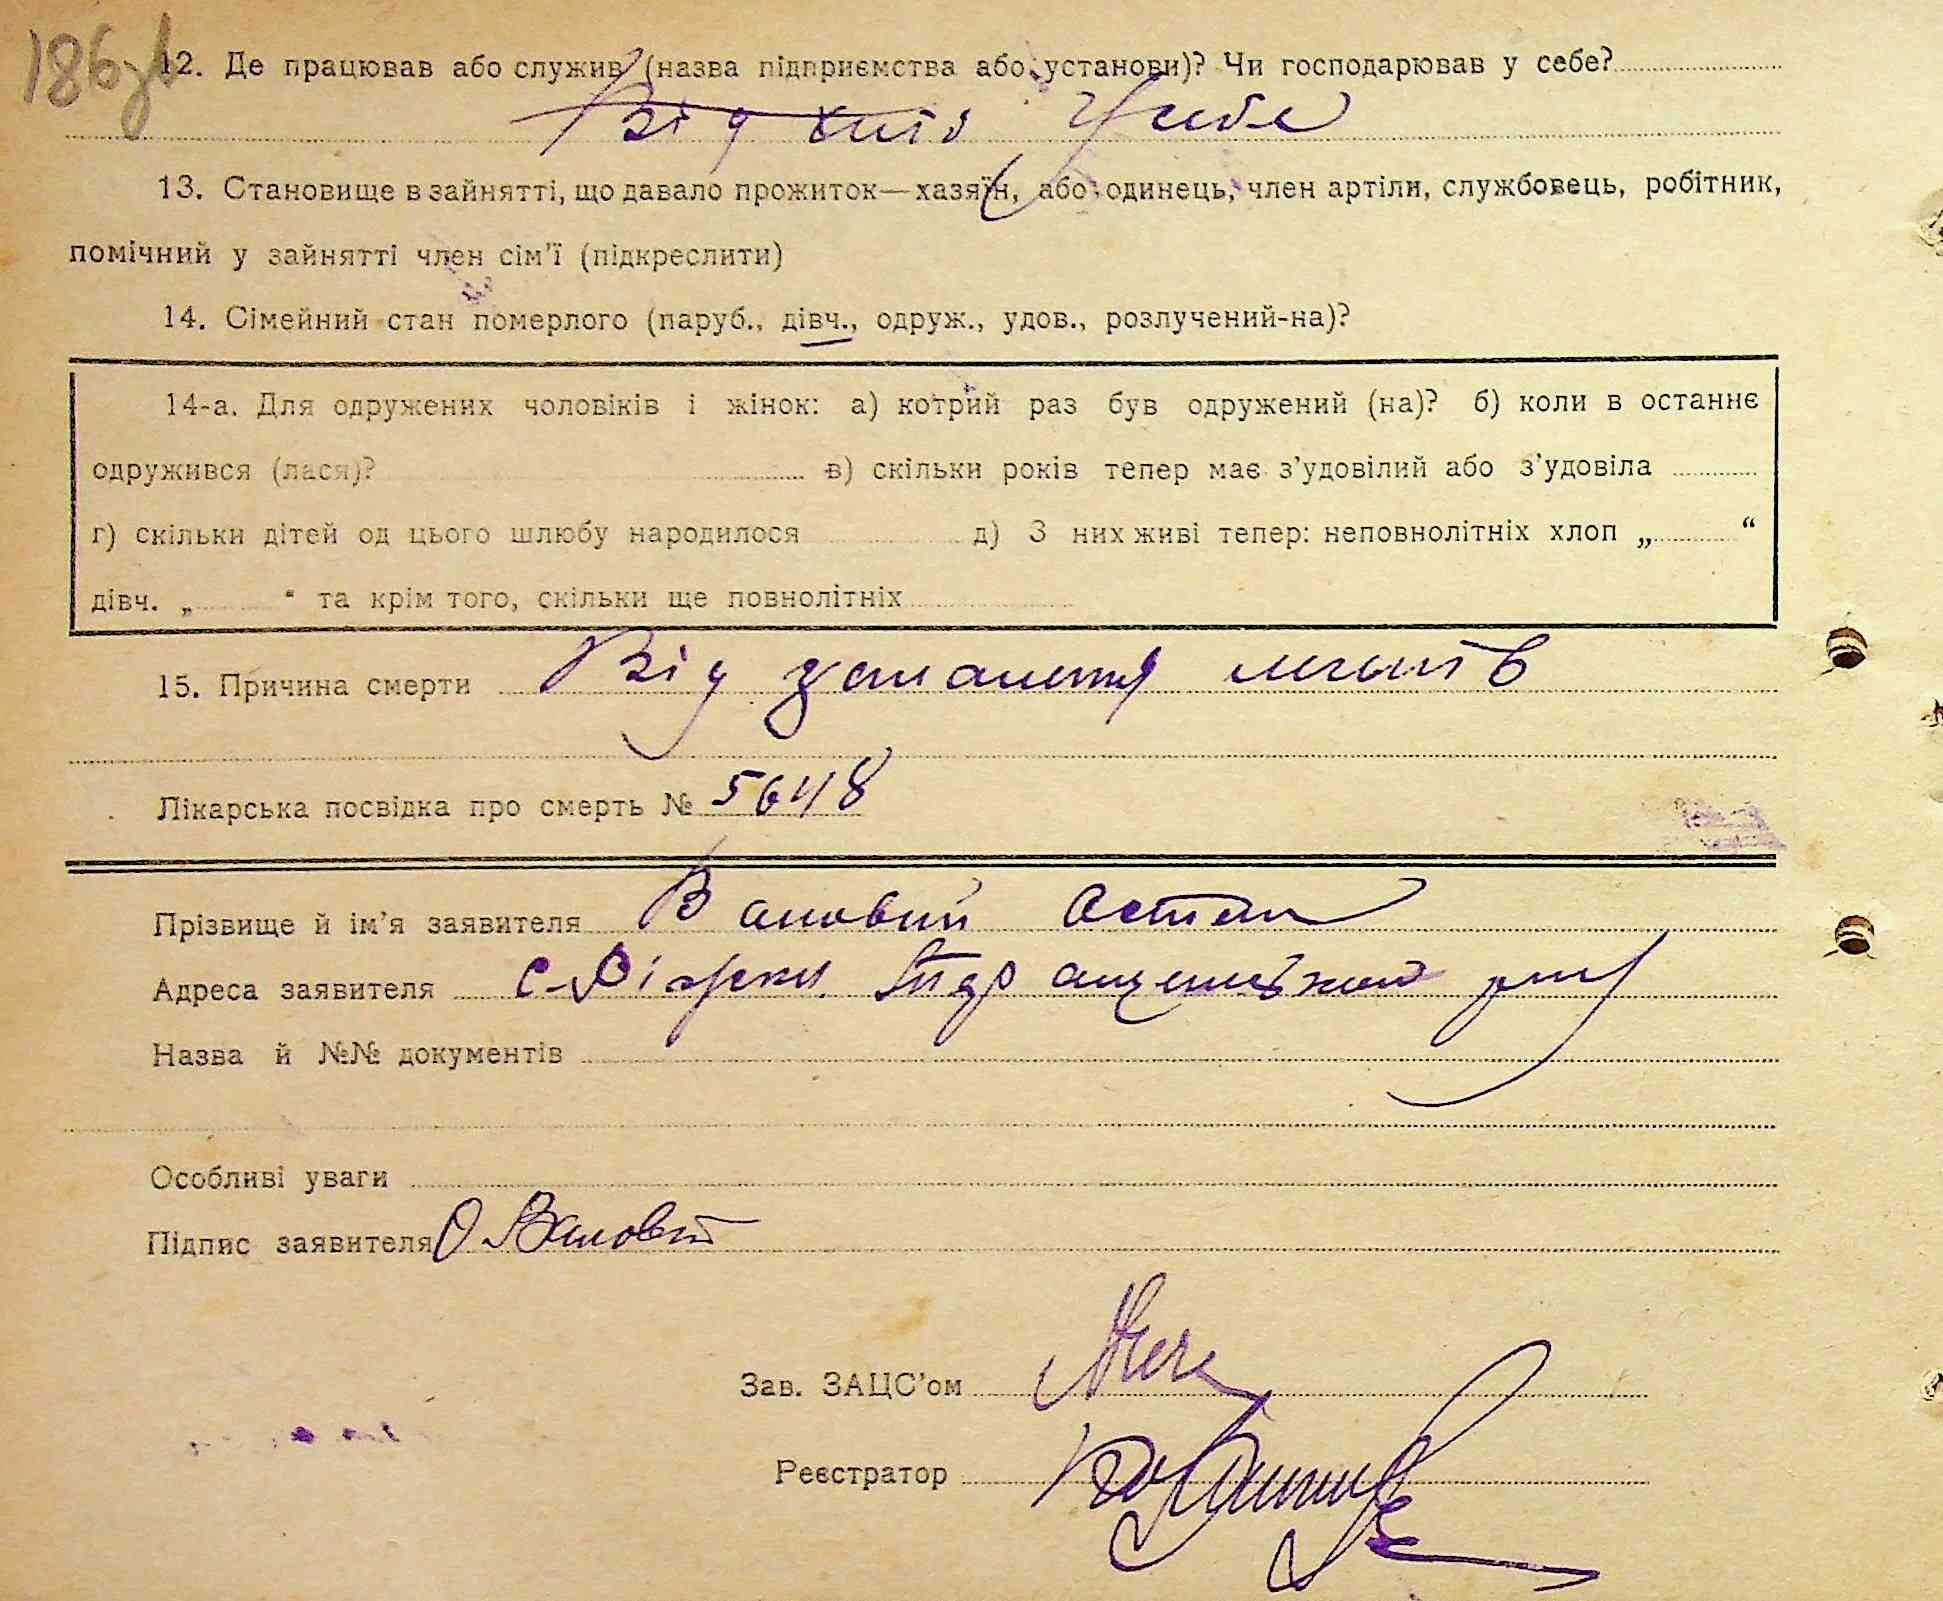 186зв
12. Де працював або служив (назва підприємства або установи)? Чи господарював у себе?
Від У себе
13. Становище в зайнятті, що давало прожиток—хазяїн, або одинець, член артіли, службовець, робітник,
помічний у зайнятті член сім'ї (підкреслити)
14. Сімейний стан померлого (паруб., дівч., одруж., удов., розлучений-на)?
14-а. Для одружених чоловіків і жінок: а) котрий раз був одружений (на)? б) коли в останнє
одружився (лася)? в) скільки років тепер має з'удовілий або з'удовіла
г) скільки дітей од цього шлюбу народилося д) З них живі тепер: неповнолітніх хлоп „ “
дівч. „ “ та крім того, скільки ще повнолітніх
15. Причина смерти Від запалення легенів
Лікарська посвідка про смерть № 5648
Прізвище й ім'я заявителя Вановий Остап
Адреса заявителя с.
Назва й №№ документів
Особливі уваги
Підпис заявителя О Вановий
Зав. ЗАЦС'ом
Реєстратор